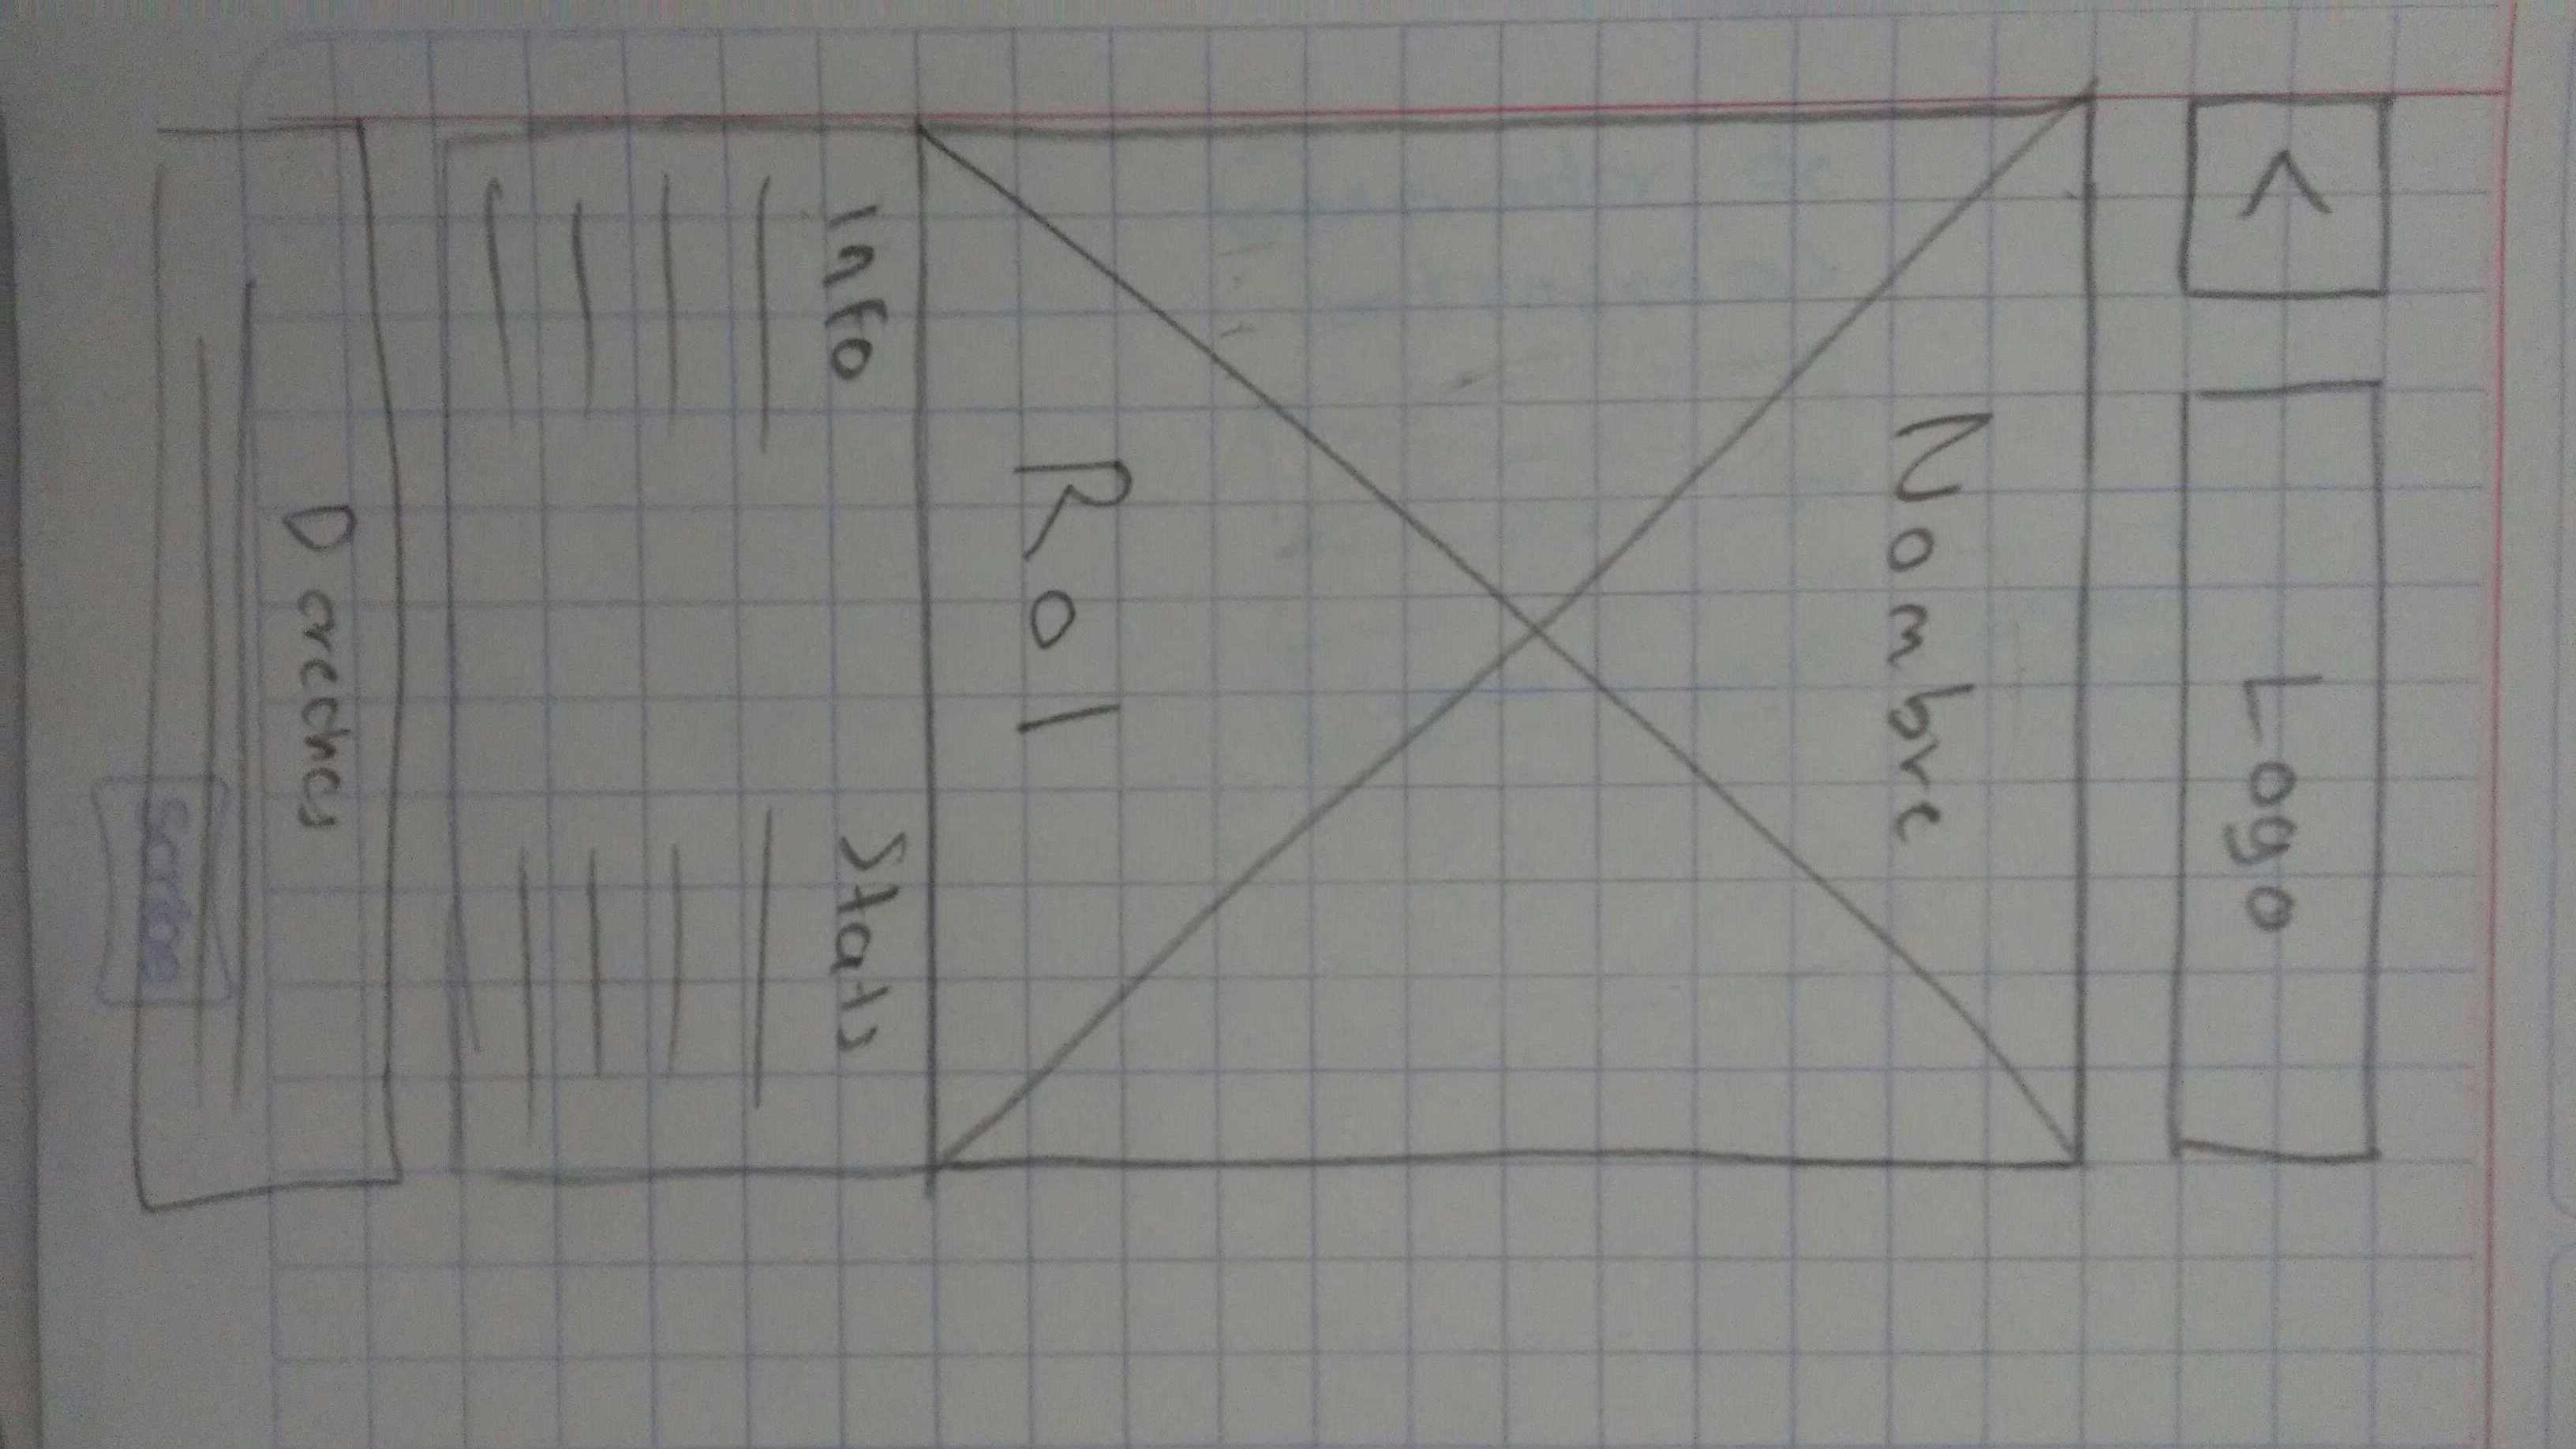 < Logo
Nombre
Rol
Info Stats
Derechos
Scribe